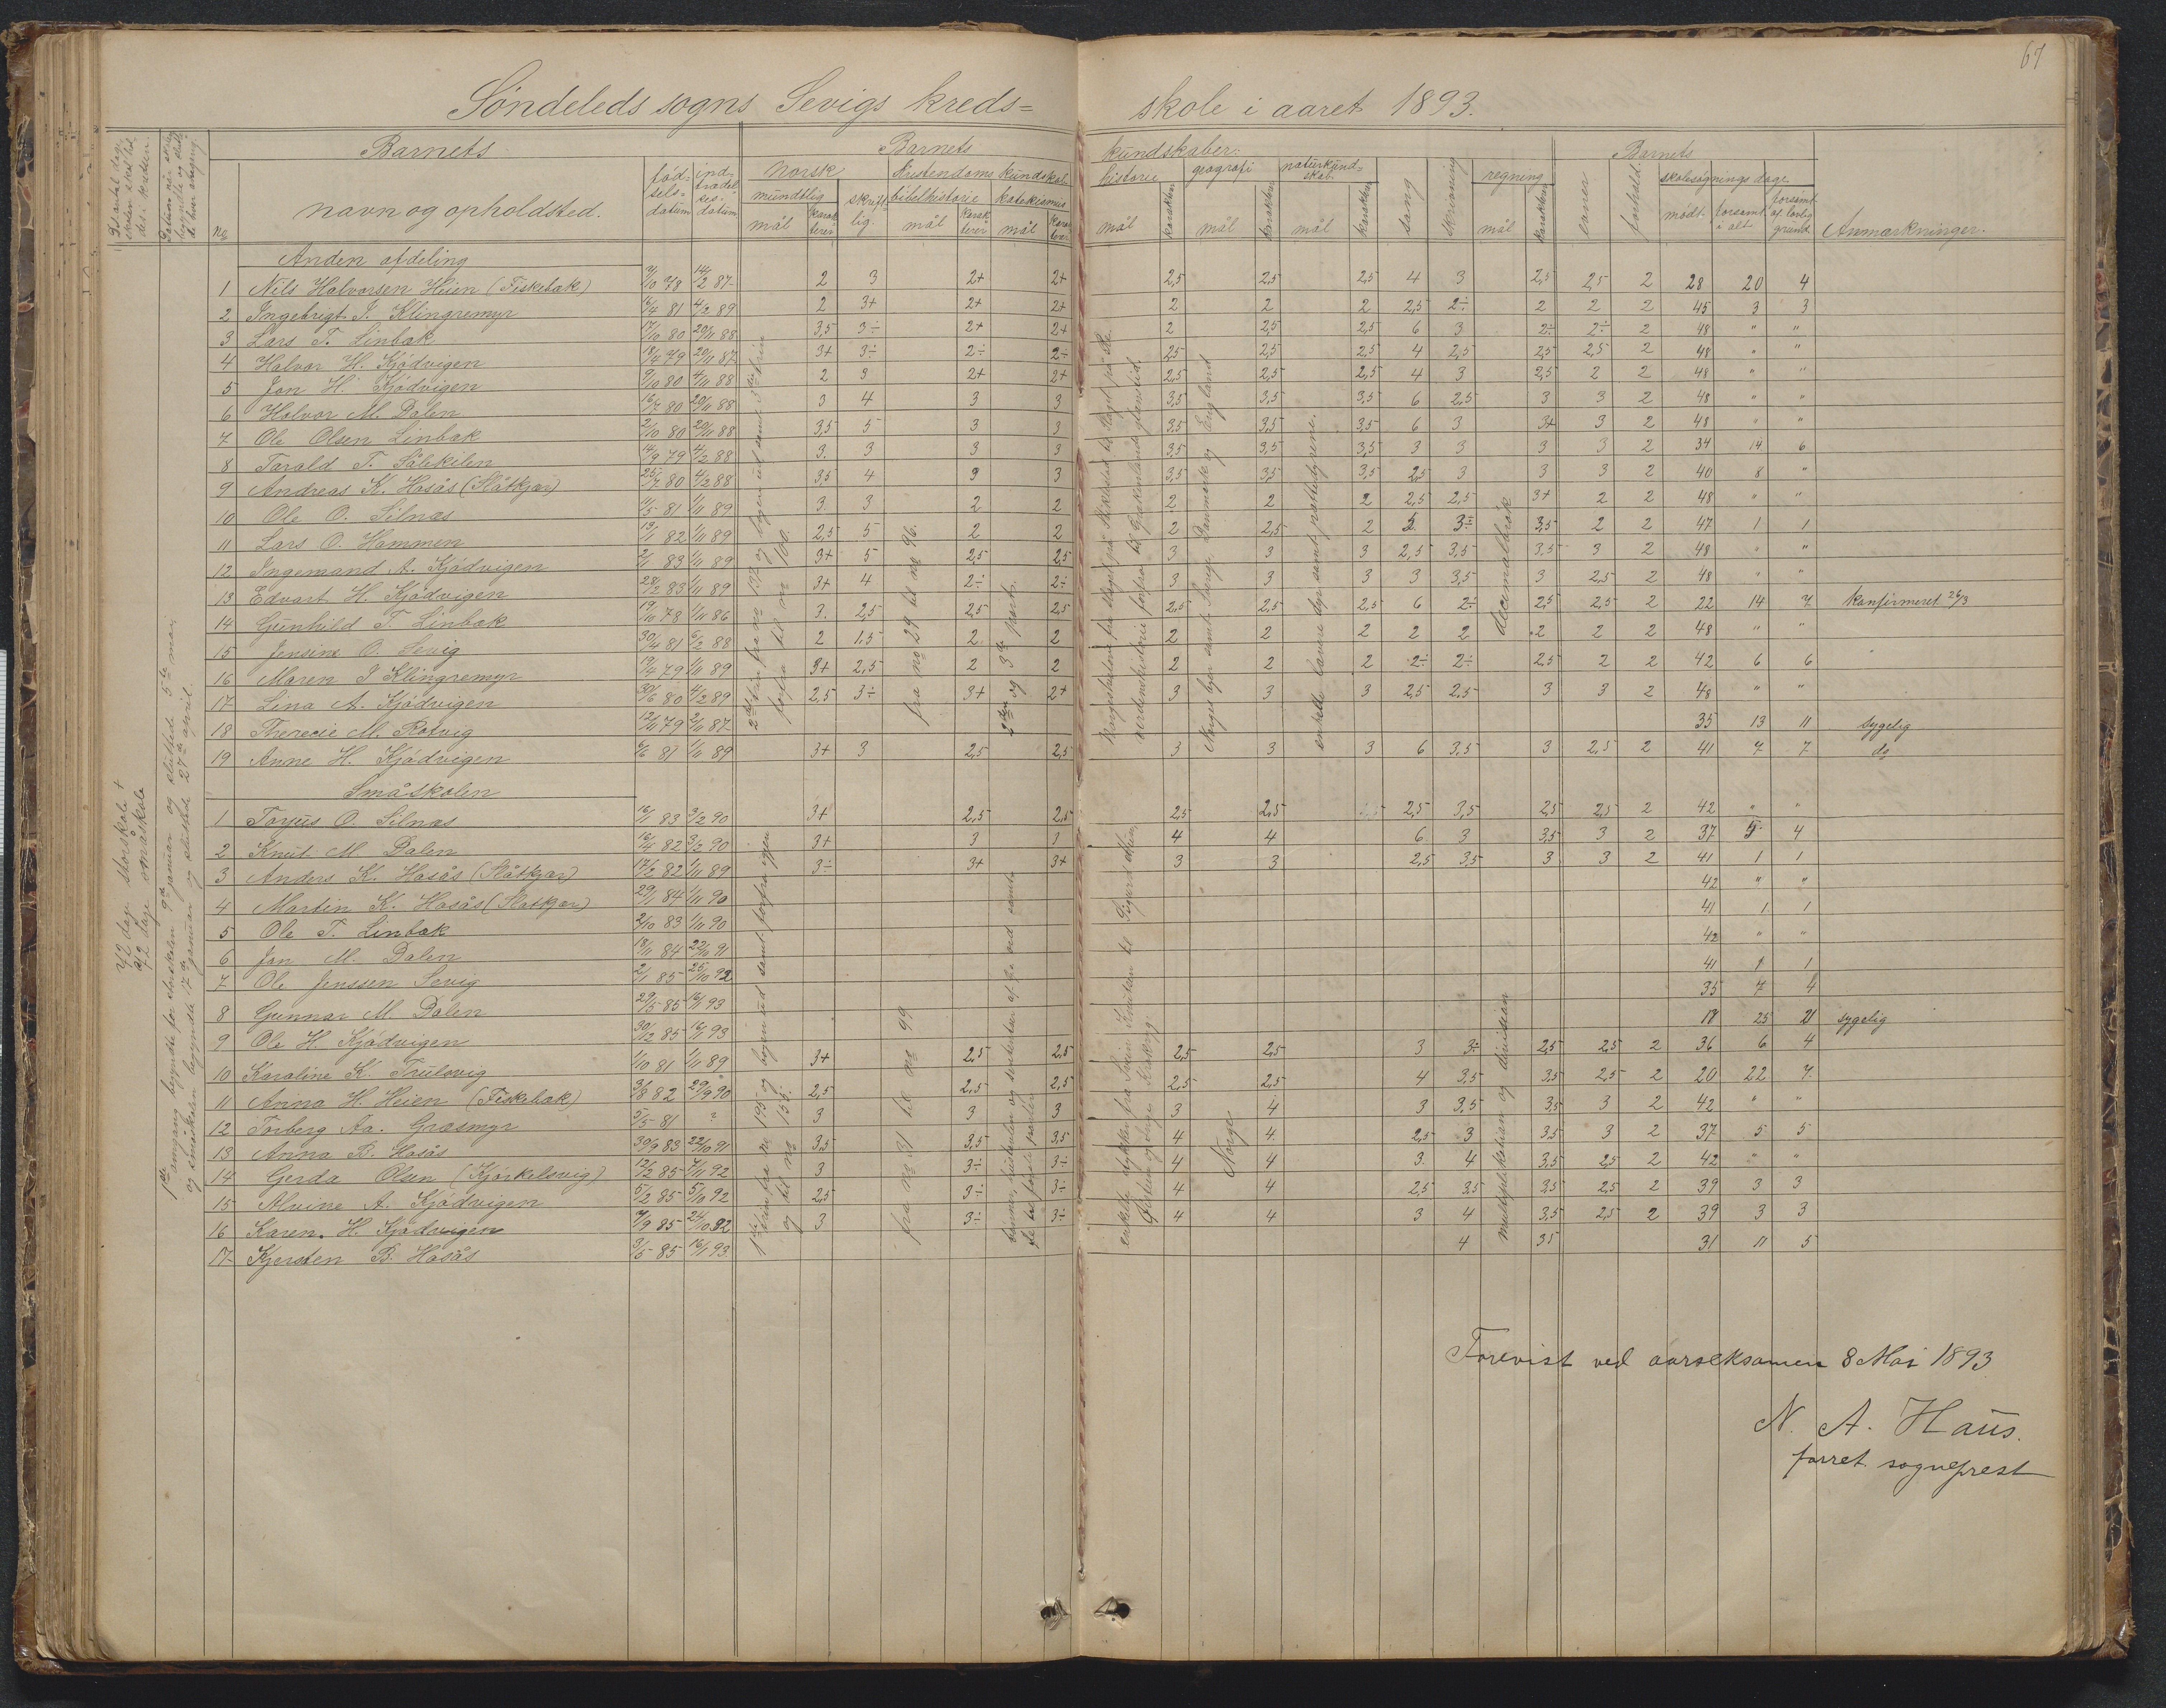 67
Söndeleds sogns Sevigs kreds= skole i aaret 1893.
Barnets Barnets kundskaber: Barnets
No navn og opholdsted. fød- sels- datum ind- trædel- ses- datum
norsk mundtlig mål karak- terer skrift- lig.
Kristendoms kundskab bibelhistorie mål karak- terer katekismus mål karak- terer
historie mål karakter geografi mål karakter naturkund- skab. mål karakter sang skrivning regning mål karakter
evner forhold skolesøgnings dage mødt. forsømt i alt forsømt af lovlig grund. Anmærkninger.
Anden afdeling
1 Nils Halvorsen Heien (Fiskebæk) 4/10 78 14/2 87 2 3 2+ 2+ 2,5 2,5 2,5 4 3 2,5 2,5 2 28 20 4
2 Ingebrigt J. Klingremyr 16/4 81 4/2 89 2 3+ 2+ 2+ 2 2 2 2,5 2÷ 2 2 2 45 3 3
3 Lars T. Linbæk 17/10 80 20/11 88 3,5 3÷ 2+ 2+ 2 2,5 2,5 6 3 2÷ 2÷ 2 48 " "
4 Halvor H. Kjödvigen 18/4 79 20/11 87 3+ 3÷ 2÷ 2÷ 2,5 2,5 2,5 4 2,5 2,5 2,5 2 48 " "
5 Jon H. Kjödvigen 9/10 80 4/11 88 2 3 2+ 2+ 2,5 2,5 2,5 4 3 2,5 2 2 48 " "
6 Halvor M. Dalen 16/7 80 20/11 88 3 4 3 3 3,5 3,5 3,5 6 2,5 3 3 2 48 " "
7 Ole Olsen Linbæk 2/10 80 20/11 88 3,5 5 3 3 3,5 3,5 3,5 6 3 3+ 3 2 48 " "
8 Tarald T. Sålekilen 14/9 79 4/2 88 3. 3 3 3 3,5 3,5 3,5 3 3 3 3 2 34 14 6
9 Andreas K. Hasås (Slåtkjær) 25/7 80 4/2 88 3,5 4 3 3 3,5 3,5 3,5 2,5 3 3 3 2 40 8 "
10 Ole O. Silnæs 11/5 81 1/11 89 3. 3 2 2 2 2 2 2,5 2,5 3+ 2 2 48 " "
11 Lars O. Hammen 13/1 82 1/11 89 2,5 5 2 2 2 2,5 2 3 3÷ 3,5 2 2 47 1 1
12 Ingemand A. Kjödvigen 2/1 83 1/11 89 3+ 5 2,5 2,5 3 3 3 2,5 3,5 3,5 3 2 48 " "
13 Edvart H. Kjödvigen 28/2 83 1/11 89 3+ 4 2÷ 2÷ 3 3 3 3 3,5 3 2,5 2 48 " "
14 Gunhild T. Linbæk 19/10 78 1/11 86 3. 2,5 2,5 2,5 2,5 2,5 2,5 6 2÷ 2,5 2,5 2 22 14 7 konfirmeret 26/3
15 Jensine O. Sevig 30/4 81 6/2 88 2 1.5 2. 2 2 2 2 2 2 2 2 2 48 " "
16 Maren J Klingremyr 19/4 79 1/11 89 3+ 2,5 2 2 2 2 2 2÷ 2÷ 2,5 2 2 42 6 6
17 Lina A. Kjödvigen 30/6 80 4/2 89 2,5 3÷ 3+ 2+ 3 3 3 2,5 2,5 3 3 2 48 " "
18 Therecie M. Rotvig 12/11 79 2/11 87 35 13 11 sygelig
19 Anne H. Kjödvigen 6/6 81 1/11 89 3+ 3 2,5 2,5 3 3 3 6 3,5 3 2,5 2 41 7 7 do
Småskolen
1 Torjus O. Silnæs 16/1 83 3/2 90 3+ 2,5 2,5 2,5 2,5 2,5 3,5 2,5 2,5 2 42 " "
2 Knut M. Dalen 16/4 82 3/2 90 3+ 3 3 4 4 6 3 3,5 3 2 37 5 4
3 Anders K. Hasås (Slåtkjær) 17/2 82 1/11 89 3÷ 3+ 3+ 3 3 2,5 3,5 3 3 2 41 1 1
4 Martin K. Hasås (Slåtkjær) 29/1 84 1/11 90 42 " "
5 Ole T. Linbæk 2/10 83 1/11 90 41 1 1
6 Jon M. Dalen 18/11 84 22/10 91 42 " "
7 Ole Jenssen Sevig 2/1 85 25/10 92 41 1 1
8 Gunnar M Dalen 29/5 85 16/1 93 35 7 4
9 Ole H. Kjödvigen 30/12 85 16/1 93 17 25 21 sygelig
10 Karoline K. Trulsvig 1/10 81 1/11 89 3+ 2,5 2,5 2,5 2,5 3 3÷ 2,5 2,5 2 36 6 4
11 Anna H. Heien (Fiskebæk) 3/8 82 29/9 90 2,5 2,5 2,5 2,5 2,5 4 3,5 3,5 2,5 2 20 22 7
12 Torberg Aa. Græsmyr 5/5 81 ? 3 3 3 3 4 3 3,5 3,5 3 2 42 " "
13 Anna B. Hasås 30/9 83 22/10 91 3,5 3,5 3,5 4 4. 2,5 3 3,5 3 2 37 5 5
14 Gerda Olsen (Kjörkelsvig) 12/2 85 7/11 92 3 3÷ 3÷ 4 4 3. 4 3,5 2,5 2 42 " "
15 Alvine A. Kjödvigen 5/2 85 5/10 92 2,5 3÷ 3÷ 4 4 2,5 3,5 3,5 2,5 2 39 3 3
16 Karen. H. Kjödvigen 9/9 85 24/10 92 3 3÷ 3÷ 4 4 3 4 3,5 2,5 2 39 3 3
17 Kjersten B. Hasås 3/5 85 16/1 93 4 3,5 31 11 5
42 dage småskole
1ste omgang begyndte for storskolen 9de januar og sluttede 5te mai
og småskolen begyndte 17de januar og sluttede 27de april.
forfra til no 100.
fra no 29 til no 96.
2den og 3die part.
verdenshistorie forfra til Grækenlands glanstid.
Norges byer samt Sverige, Danmark og England
enkelte lavere dyr samt pattedyrene.
decimalbrøk
og til no 155.
fra no 31 til no 49
Norge
multiplikation og division
Forevist ved aarseksamen 8 Mai 1893
N. A. Haüs.
forret. sogneprest